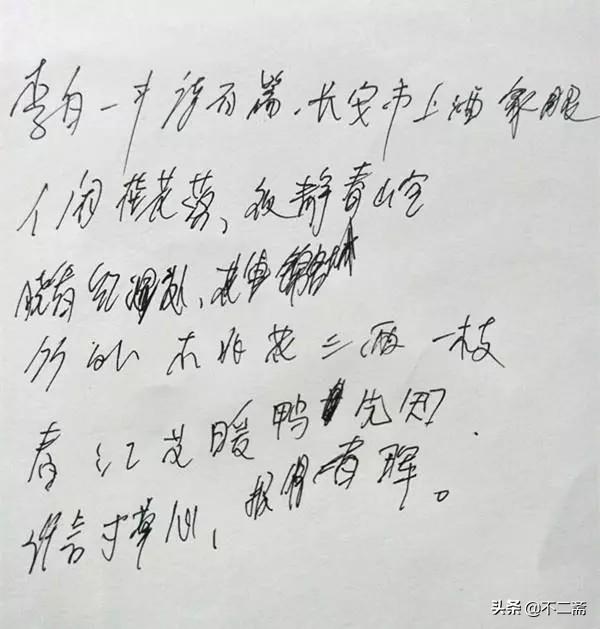 李白一斗诗百篇、长安市上酒家眠
人闲桂花落、夜静春山空
晓看红湿处、花重锦官城
竹外桃花三两枝
春江花暖鸭先知.
谁言寸草心，报得三春晖。
头条 @不二斋